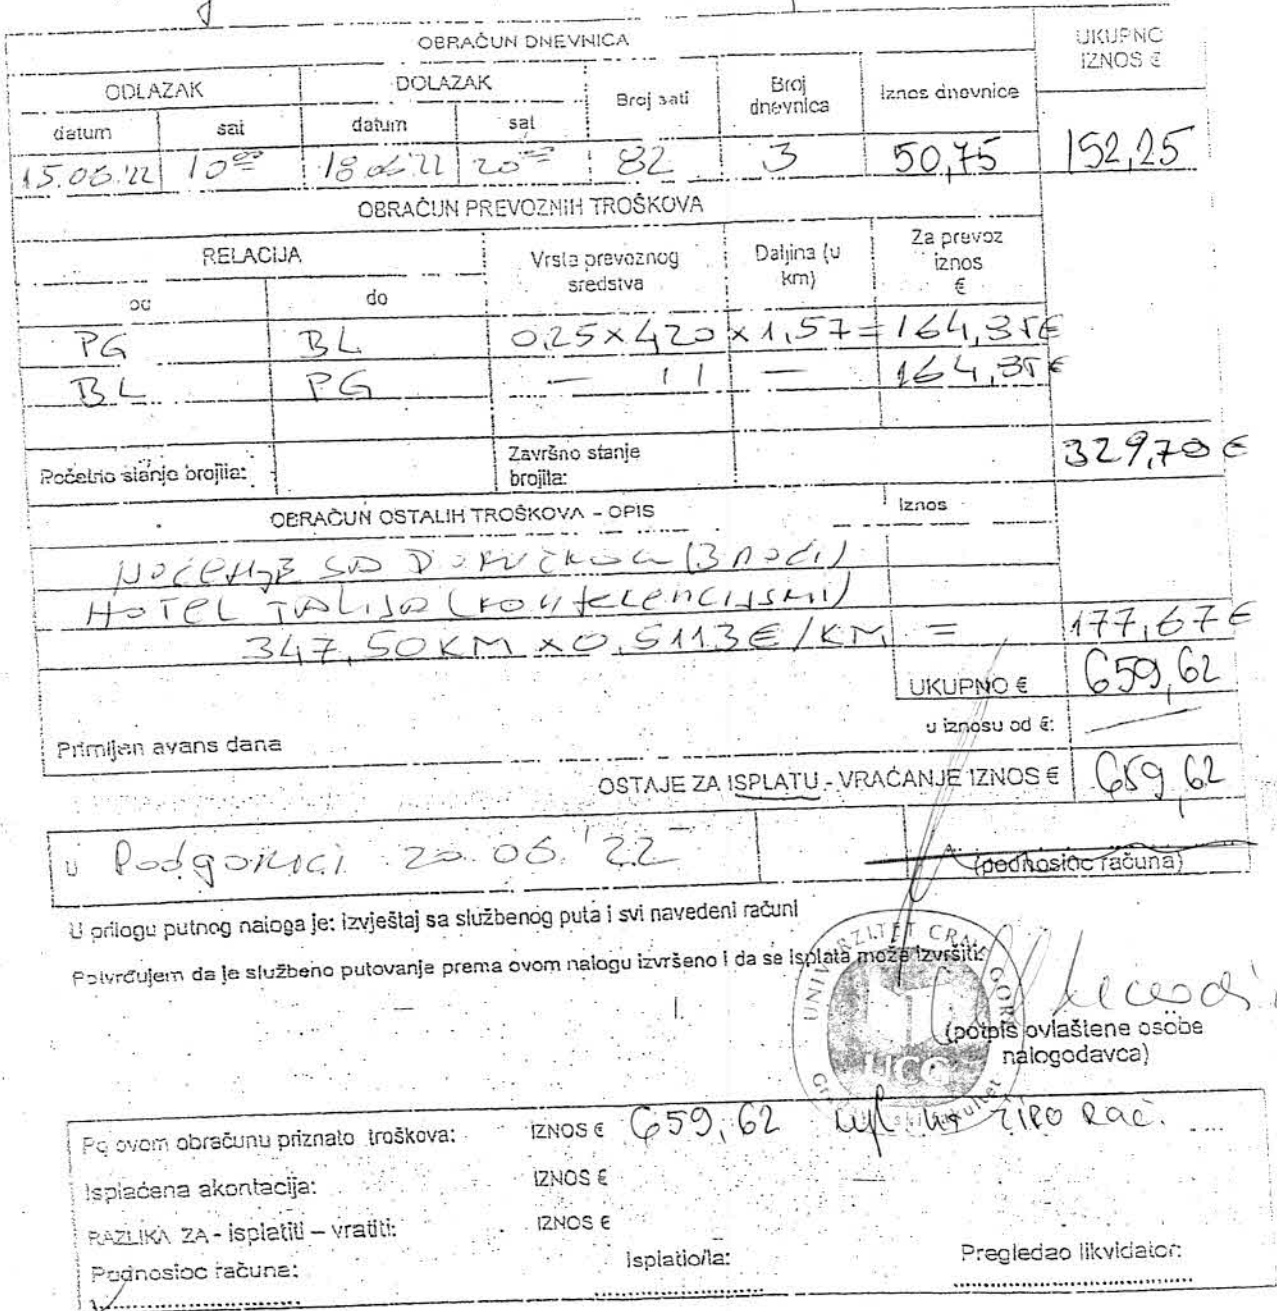 OBRAČUN DNEVNICA
UKUPNO IZNOS €
ODLAZAK DOLAZAK Broj sati Broj dnevnica Iznos dnevnice
datum sat datum sat
15.06.'22 10°° 18.06.'22 20°° 82 3 50,75 152,25
OBRAČUN PREVOZNIH TROŠKOVA
RELACIJA Vrsta prevoznog sredstva Daljina (u km) Za prevoz iznos €
od do
PG BL 0,25 x 420 x 1,57 = 164,85 €
BL PG — 11 — 164,85 €
329,70 €
Početno stanje brojila: Završno stanje brojila:
OBRAČUN OSTALIH TROŠKOVA - OPIS Iznos
NOĆENJE SA DORUČKOM (3 noći)
HOTEL TALIJA (konferencijski)
347,50 KM x 0,5113 €/KM = 177,67 €
UKUPNO € 659,62
Primljen avans dana u iznosu od €: —
OSTAJE ZA ISPLATU - VRAĆANJE IZNOS € 659,62
U Podgorici 20.06.'22
(podnosioc računa)
U prilogu putnog naloga je: izvještaj sa službenog puta i svi navedeni računi
Potvrđujem da je službeno putovanje prema ovom nalogu izvršeno i da se isplata može izvršiti:
UNIVERZITET CRNE GORE
UCG
(potpis ovlaštene osobe nalogodavca)
Po ovom obračunu priznato troškova: IZNOS € 659,62 žiro rač.
Isplaćena akontacija: IZNOS €
RAZLIKA ZA - isplatiti – vratiti: IZNOS €
Podnosioc računa: Isplatio/la: Pregledao likvidator: